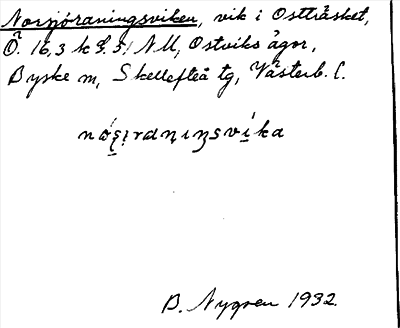 Norsjöraningsviken, vik i Ostträsket,
Ö. 16,3 k S. 5, N M, Ostviks ägor,
Byske m, Skellefteå tg, Västerb. l.
B. Nygren 1932.